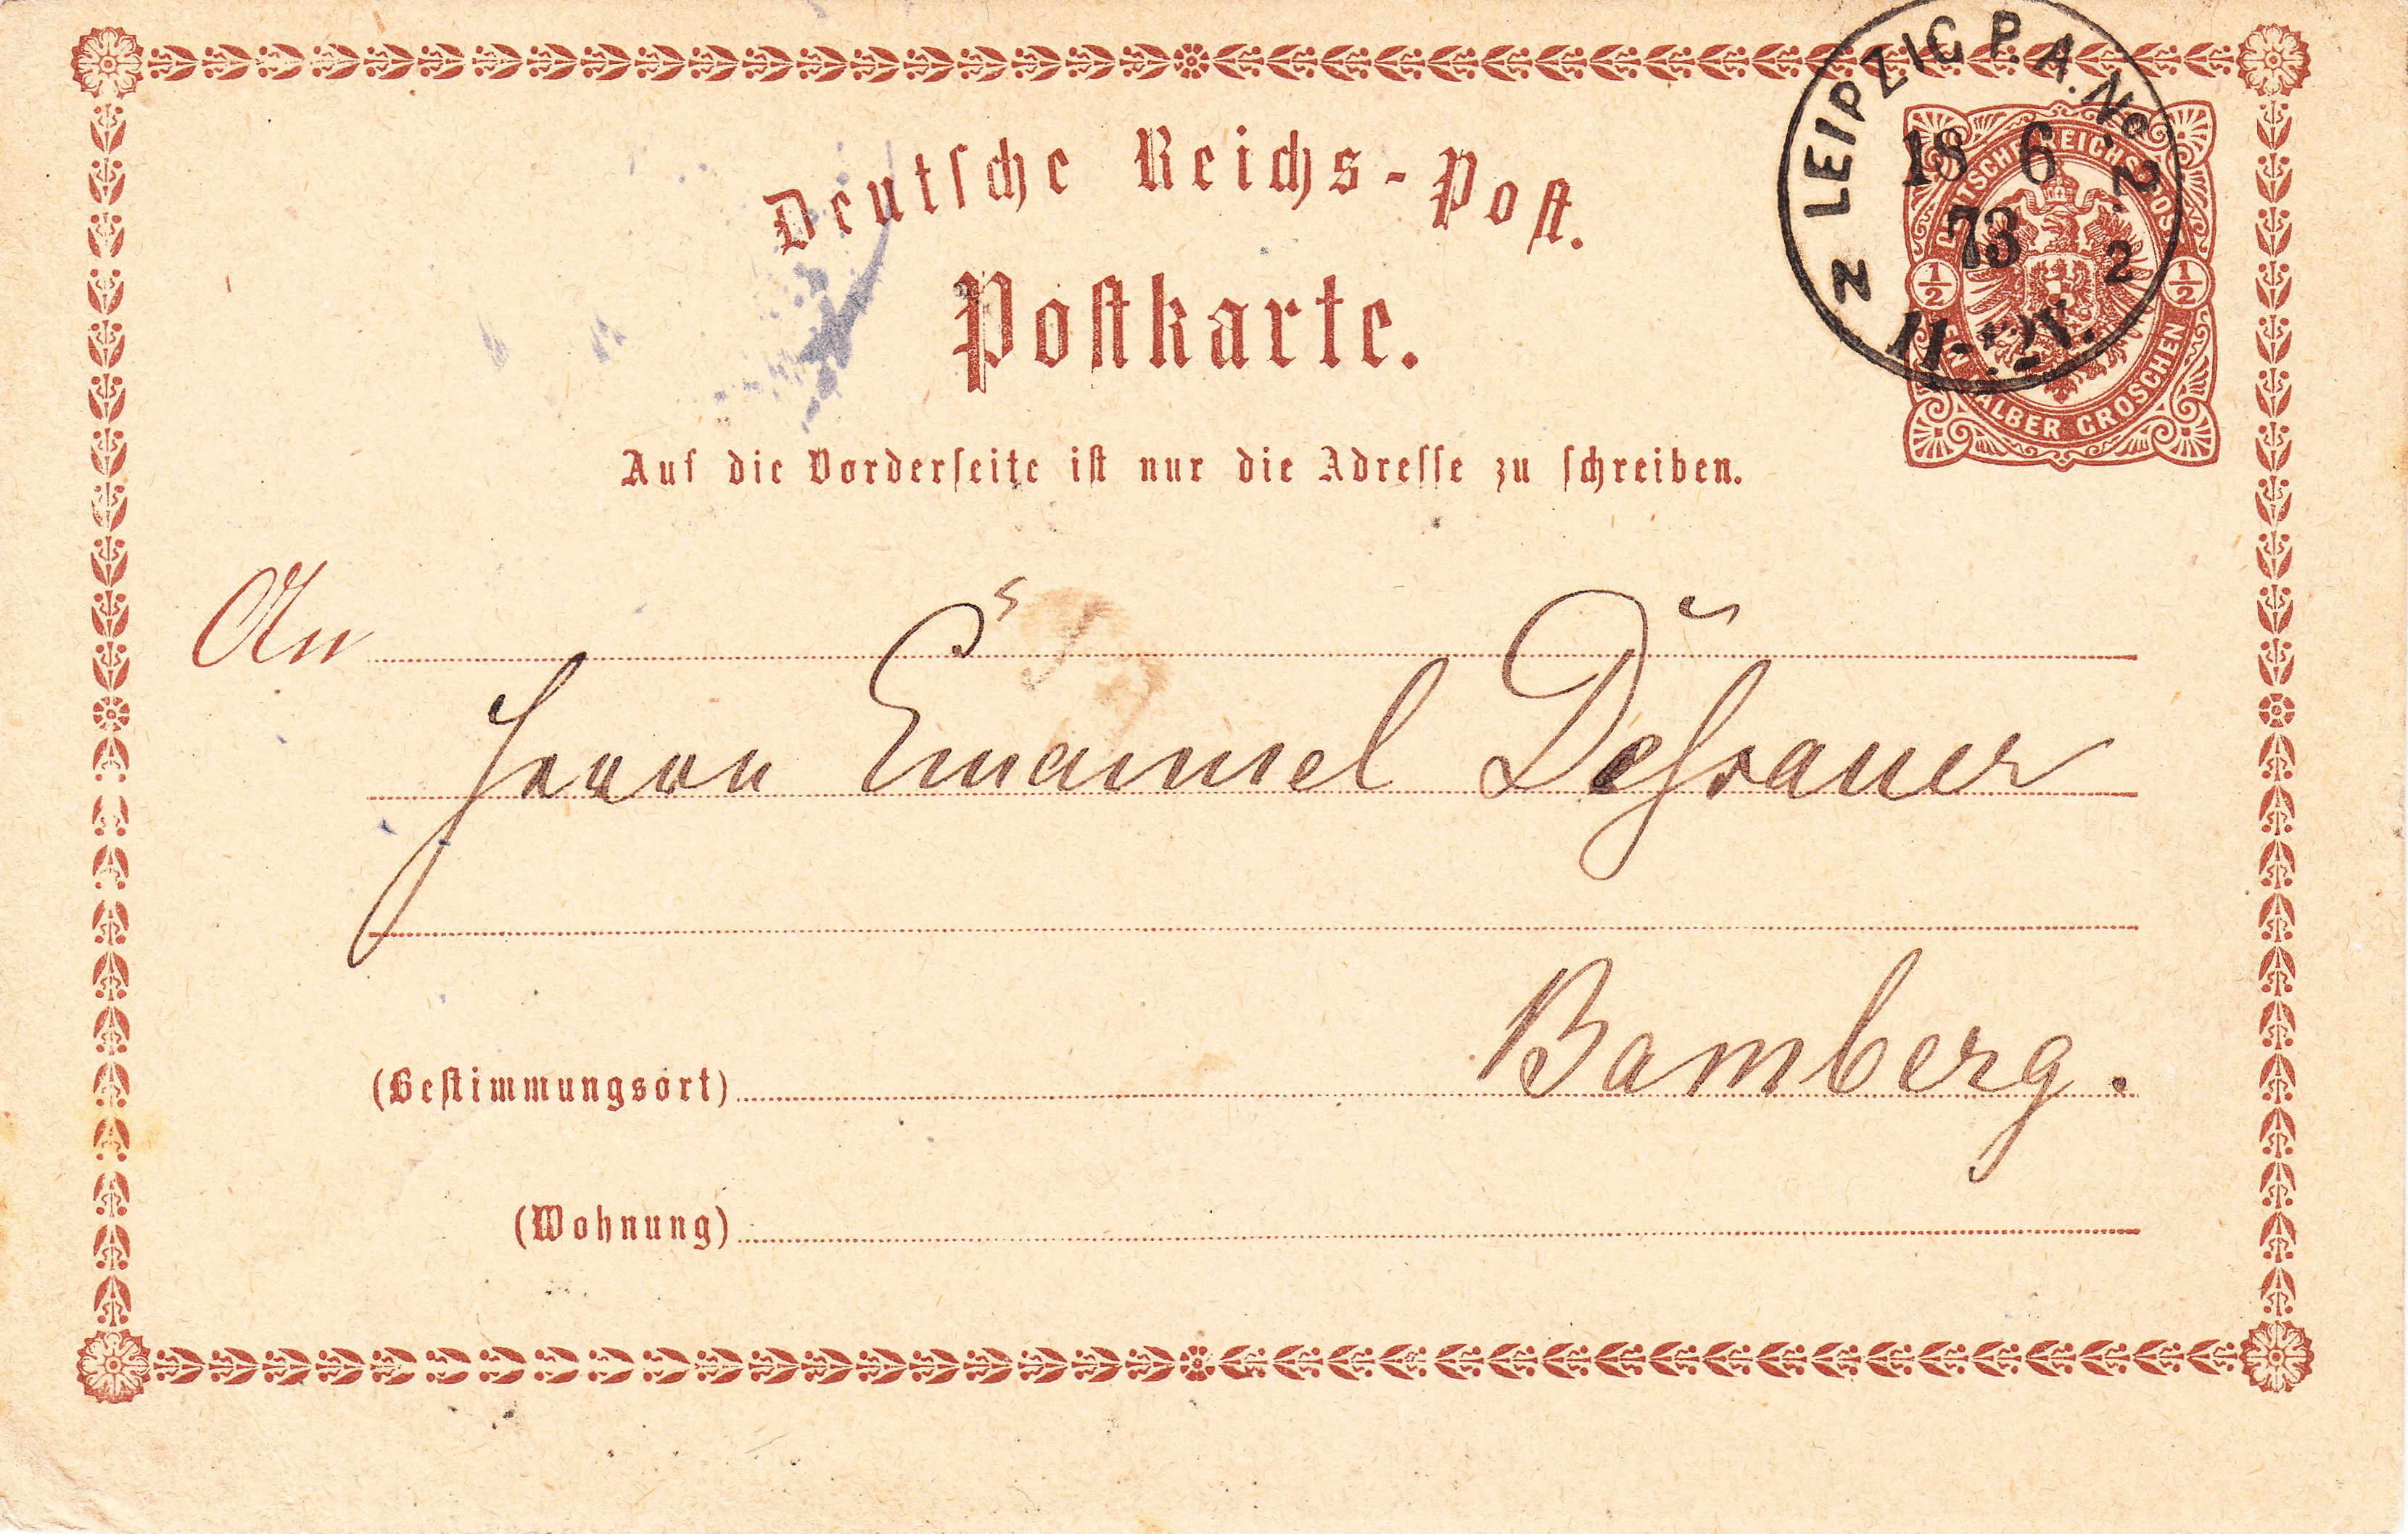 Deutsche Reichs-Post.
Postkarte.
LEIPZIG P.A. No 2.
18 6
73
2
N
11-12V.
DEUTSCHE REICHSPOST
½ ½
EIN HALBER GROSCHEN
Auf die Vorderseite ist nur die Adresse zu schreiben.
An
Herrn Emanuel Dessauer
Bamberg.
(Bestimmungsort)
(Wohnung)